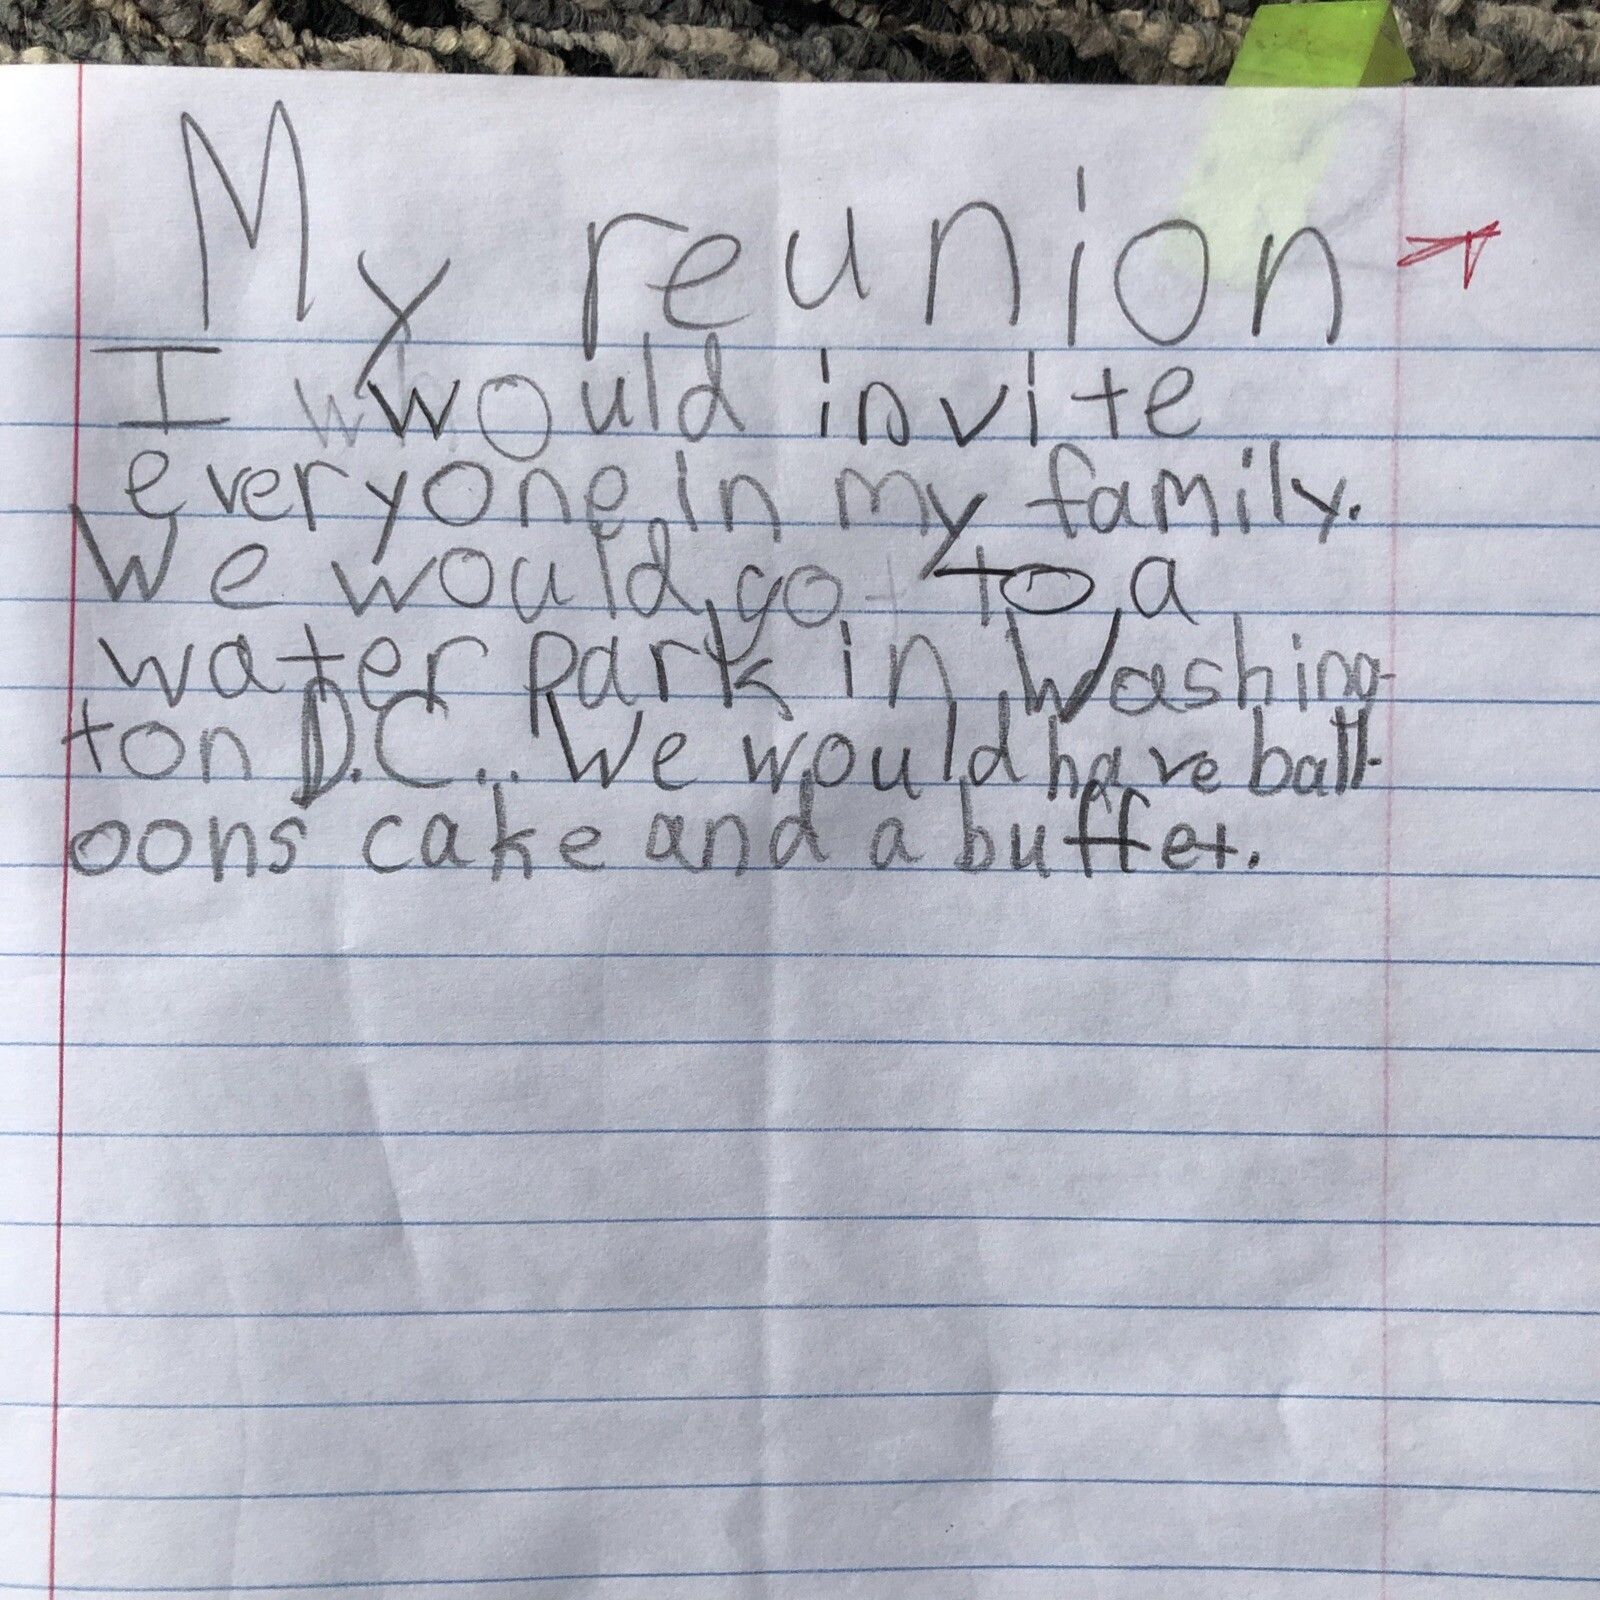 My reunion
I would invite
everyone in my family.
We would go to a
water park in Washing-
ton D.C... We would have ball-
oons cake and a buffet.